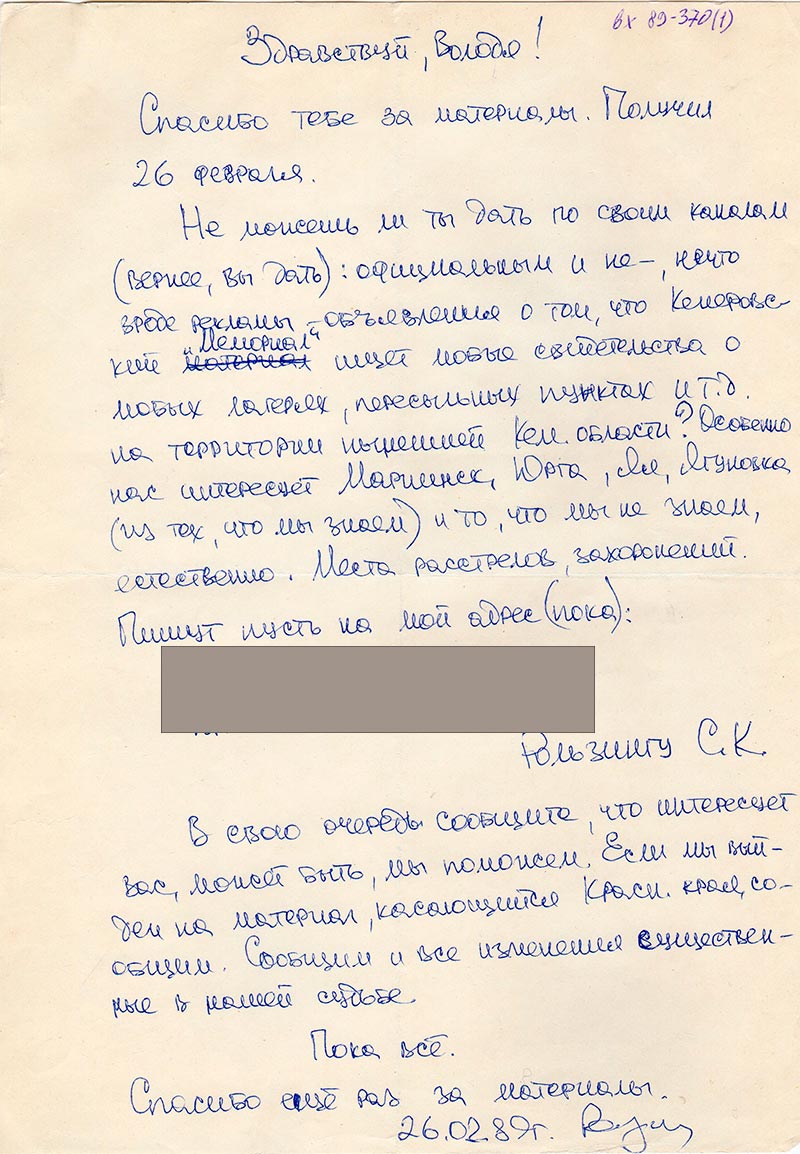 вх 89-370(1)
Здравствуй, Володя!
Спасибо тебе за материалы. Получил
26 февраля.
Не можешь ли ты дать по своим каналам
(вернее, вы дать): официальным и не-, нечто
вроде рекламы-объявления о том, что Кемеровс-
кий материал "Мемориал" ищет новые свидетельства о
новых лагерях, пересыльных пунктах и т.д.
на территории нынешней Кем. области? Особенно
нас интересует Мариинск, Юрга, Ая, Ягуновка
(из тех, что мы знаем) и то, что мы не знаем,
естественно. Места расстрелов, захоронений.
Пишут пусть на мой адрес (пока):
С.К.
В свою очередь сообщите, что интересует
вас, может быть, мы поможем. Если мы вый-
дем на материал, касающийся Красн. края, со-
общим. Сообщим и все изменения существен-
ные в нашей судьбе.
Пока всё.
Спасибо ещё раз за материалы.
26.02.89г.